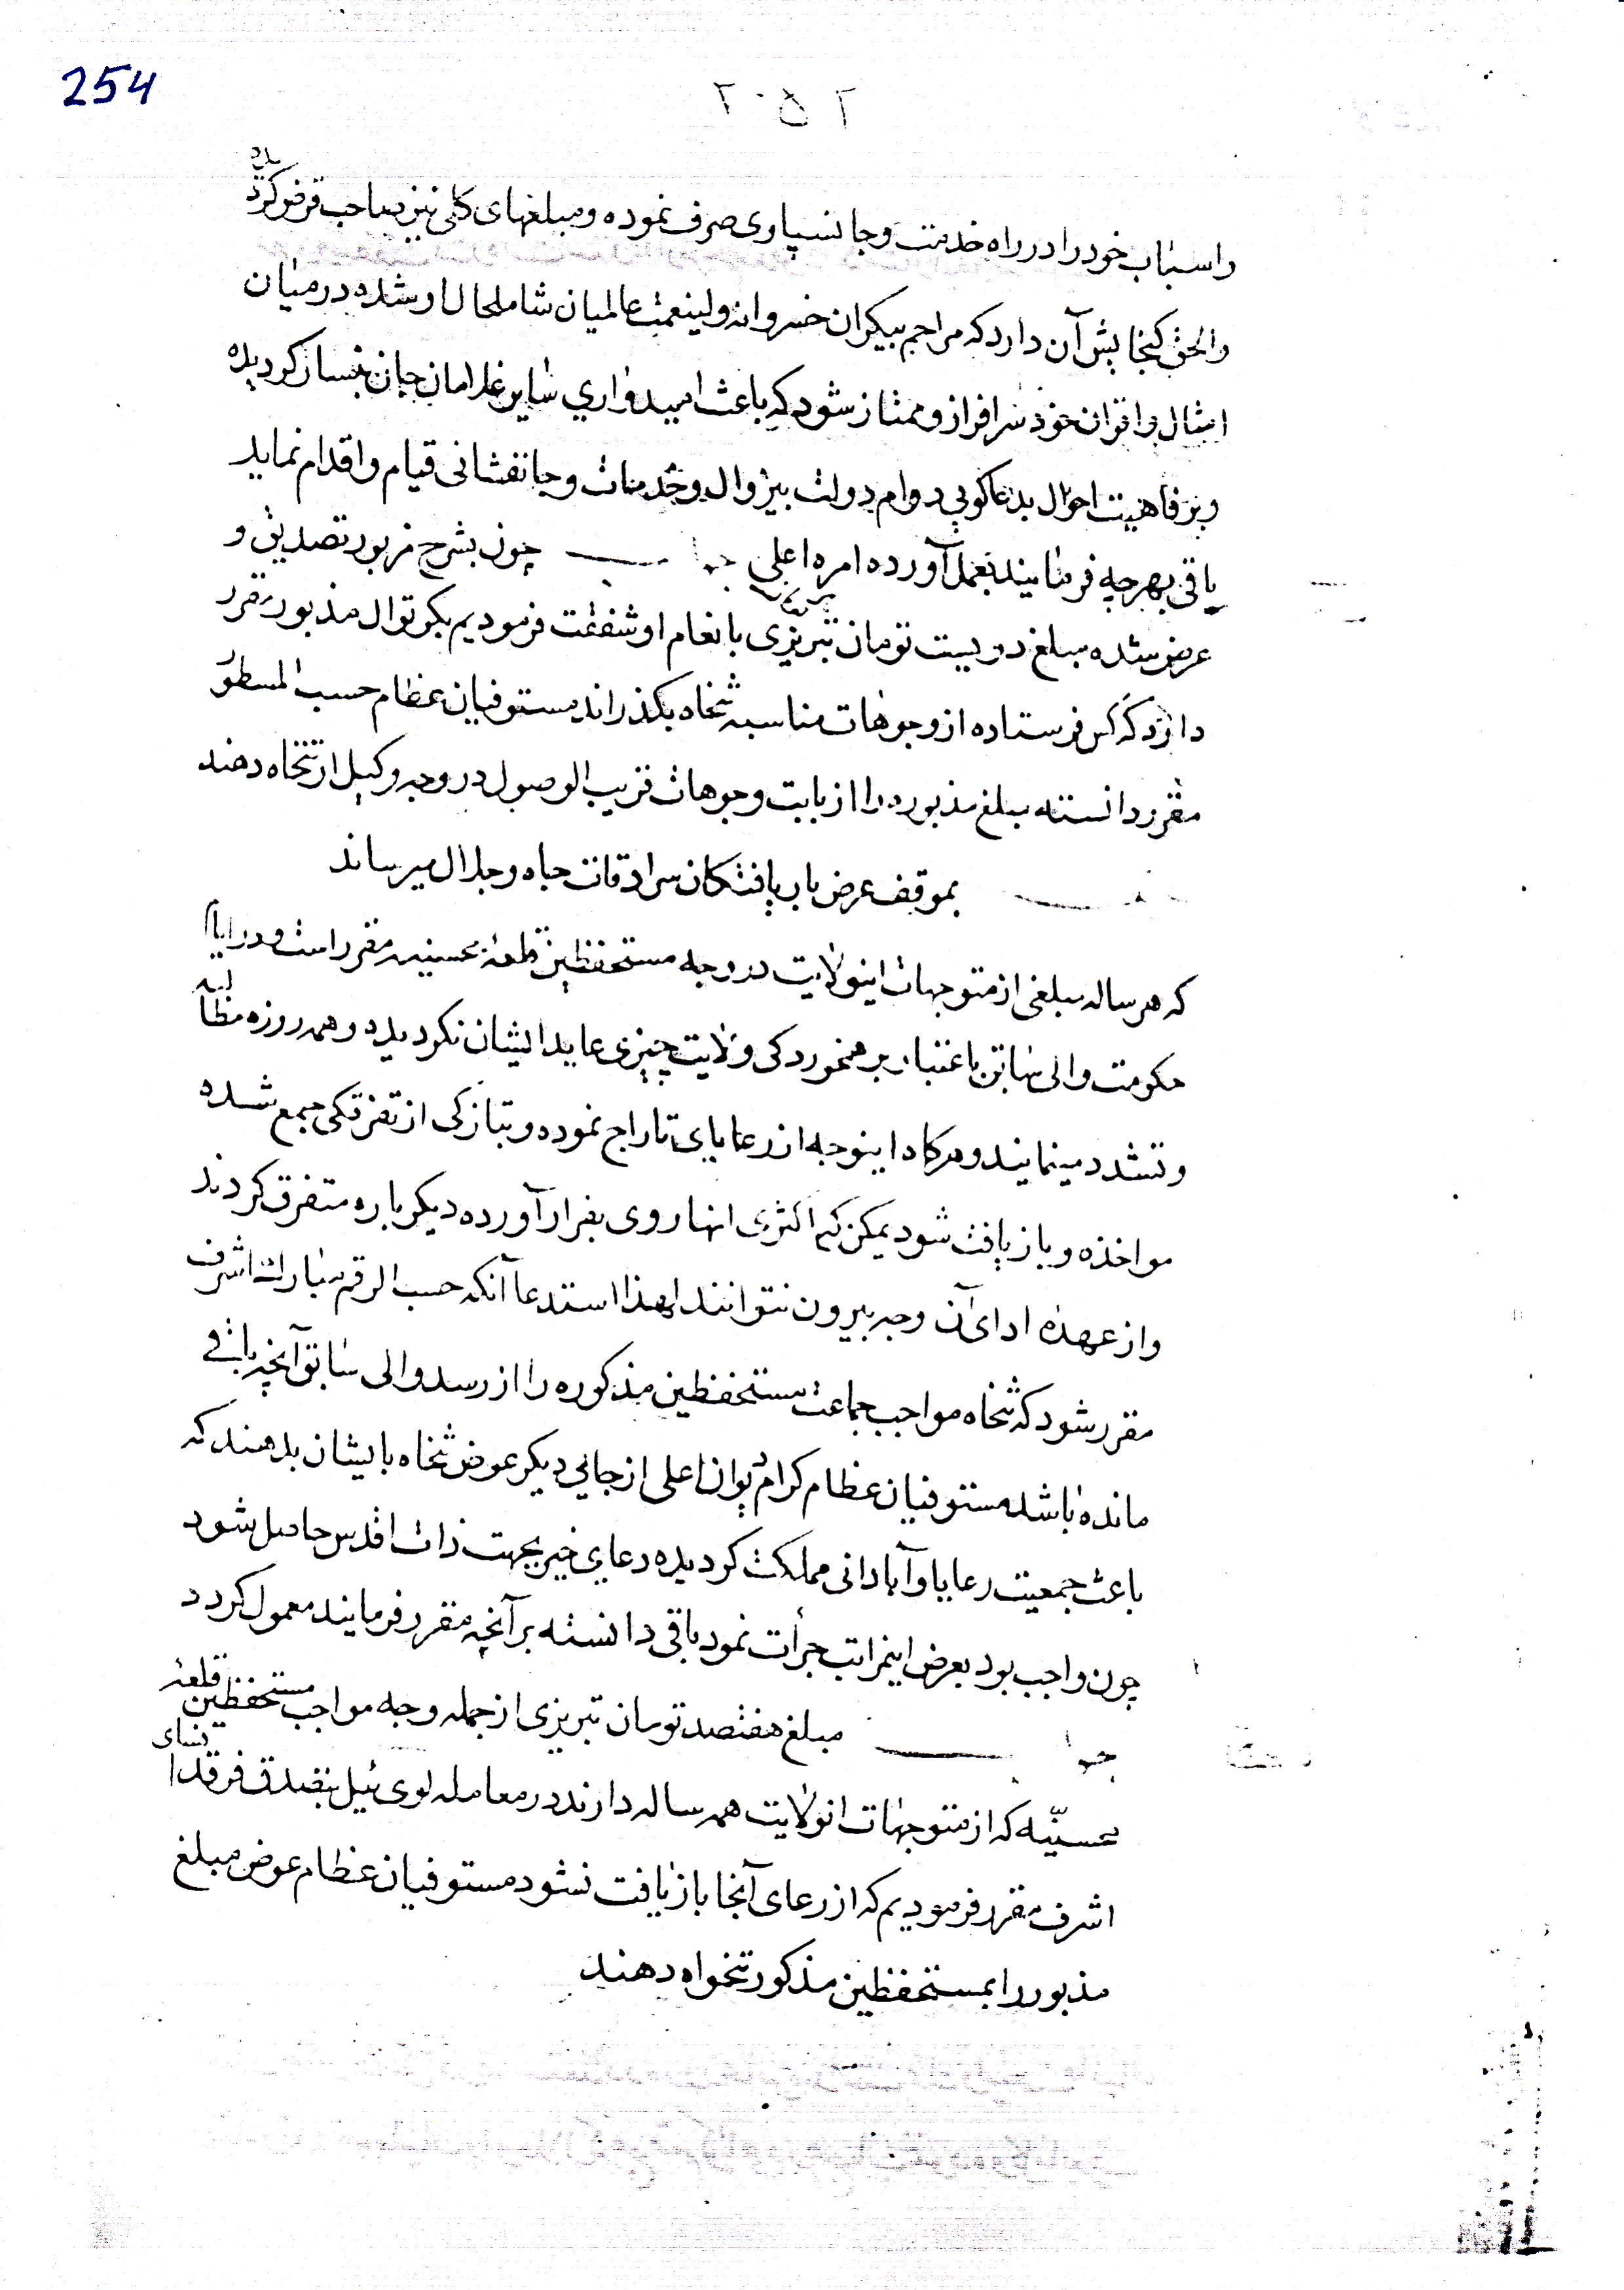 254
۲۰۵۲
واسباب خود را در راه خدمت و جانسپاری صرف نموده و مبلغهای کلی نیز بصاحب قرض کردیده
والحق کنجایش آن دارد که مراحم بیکران خسروانه ولینعمت عالمیان شاملحال او شده در میان
امثال و اقران خود سرافراز و ممتاز شود که باعث امیدواری سایر غلامان جان نثار کردیده
و برفاهیت احوال بدعاکویی دوام دولت بیزوال و خدمات و جانفشانی قیام و اقدام نماید
باقی بهرچه فرمایند بعمل آورده امره اعلی جواب چون بشرح مزبور تصدیق و
عرض شده مبلغ دویست تومان تبریزی بانعام او شفقت فرمودیم بکرتوال مذبور مقرر
دارد که کس فرستاده از وجوهات مناسبه تنخاه بکذراند مستوفیان عظام حسب المسطور
مقرر دانسته مبلغ مذبوره را از بابت وجوهات قریب الوصول در وجه وکیل او تنخاه دهند
بموقف عرض باریافتکان سرادقات جاه و جلال میرساند
که هر ساله مبلغی از متوجهات اینولایت در وجه مستحفظین قلعه محسنیه مقرر است و در ایام
حکومت والی سابق باعتبار برهمخوردکی ولایت چیزی عاید ایشان نکردیده و همه روزه مطالبه
و تشدد مینمایند و هرکاه اینوجه از رعایای تاراج نموده و بتازکی از تفرقکی جمع شده
مواخذه و بازیافت شود یمکن که اکثری انها روی بفرار آورده دیکرباره متفرق کردند
و از عهده ادای آن وجه بیرون نتوانند لهذا استدعا آنکه حسب الرقم مبارک اشرف
مقرر شود که تنخاه مواجب جماعت مستحفظین مذکوره را از رسد والی سابق آنچه باقی
مانده باشد مستوفیان عظام کرام دیوان اعلی از جایی دیکر عوض تنخاه بایشان بدهند که
باعث جمعیت رعایا و آبادانی مملکت کردیده دعای خیر بجهت ذات اقدس حاصل شود
چون واجب بود بعرض اینمراتب جرأت نمود باقی دانسته بر آنچه مقرر فرمایند معمول کردد
جواب مبلغ هفتصد تومان تبریزی از جمله وجه مواجب مستحفظین قلعه
محسنیّه که از متوجهات انولایت همه ساله دارند در معامله لوی ئیل بتصدق فرق فرقدسای
اشرف مقرر فرمودیم که از رعای آنجا بازیافت نشود مستوفیان عظام عوض مبلغ
مذبور را بمستحفظین مذکور تنخواه دهند